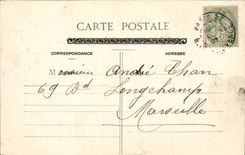 CARTE POSTALE
CORRESPONDANCE
ADRESSE
Monsieur André Chan
69 Bd Longchamp
Marseille